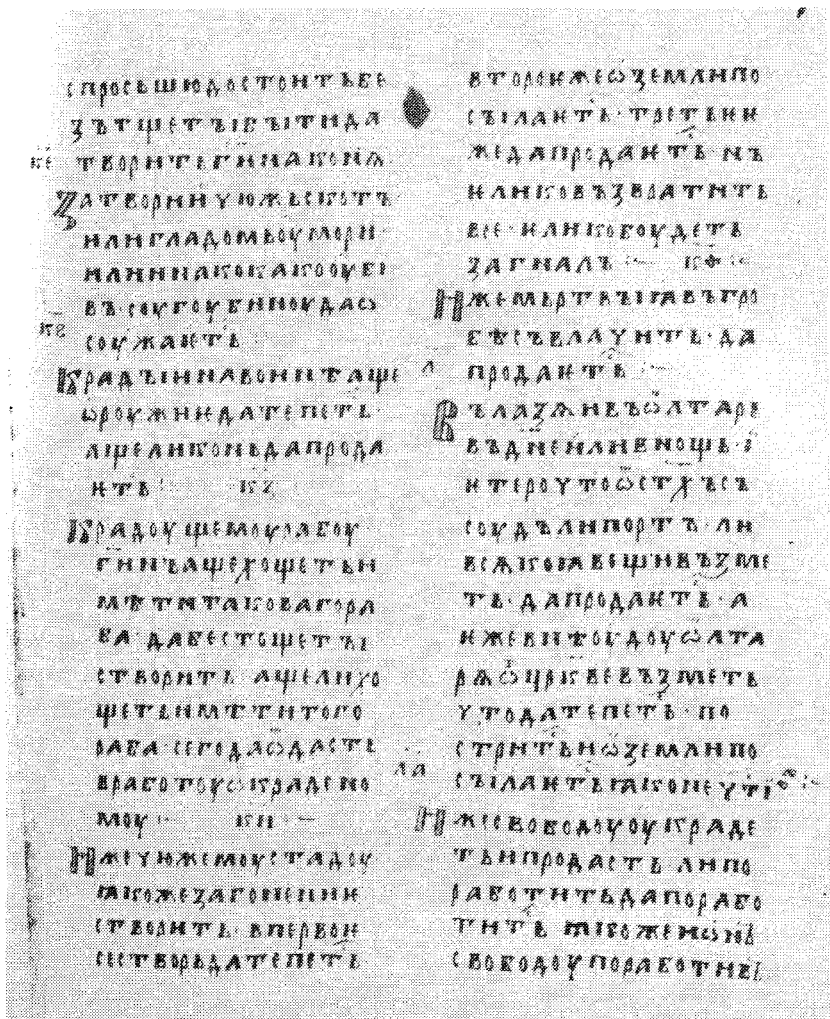 спросьшюдостоитьбе
зътщетъıбъıтида
творитьг҃ииаконѧ
Затворииүюжьскотъ
илигладомьоуморн
илиинакокакооуби
въ·соугоубиноудаѡ
соужаѥть
Крадъıинавоинѣаще
ѡроужиѥдатепеть
ащеликоньдапрода
ѥть к҃з
Крадоущемоурабоу
г҃инъащехощетьи
мѣтитаковагора
ба·дабестощетъı
створить ащелихо
щетьимѣтитого
раба·сегодаѿдасть
вработоуѡкрадено
моу к҃и
Ижеүюжемоустадоу
ꙗкожезагонениѥ
створить·впервоѥ
сестворьдатепеть
второѥжеѿземлипо
съıлаѥть·третьѥи
жедапродаѥть·нъ
иликовъзвратить
все·иликобоудеть
загналъ к҃ѳ
Ижемьртвъıꙗвъгро
бѣсъвлачить·да
продаѥть
Вълазѧивъѡлтарь
въдн҃еиливнощь·ї
итероутоѿст҃хъсъ
соудълипортъ·ли
всѧкоꙗвещивъзме
ть·дапродаѥть·а
ижевнѣоудоуѡлта
рѧѿцр҃квевъзметь
чтодатепеть·по
стритьиѿземлипо
съıлаѥтьꙗконеүти
Ижесвободоуоукраде
тьипродасть·липо
работитьдапорабо
тить ꙗкожеиѡнъ
свободоупоработивъ